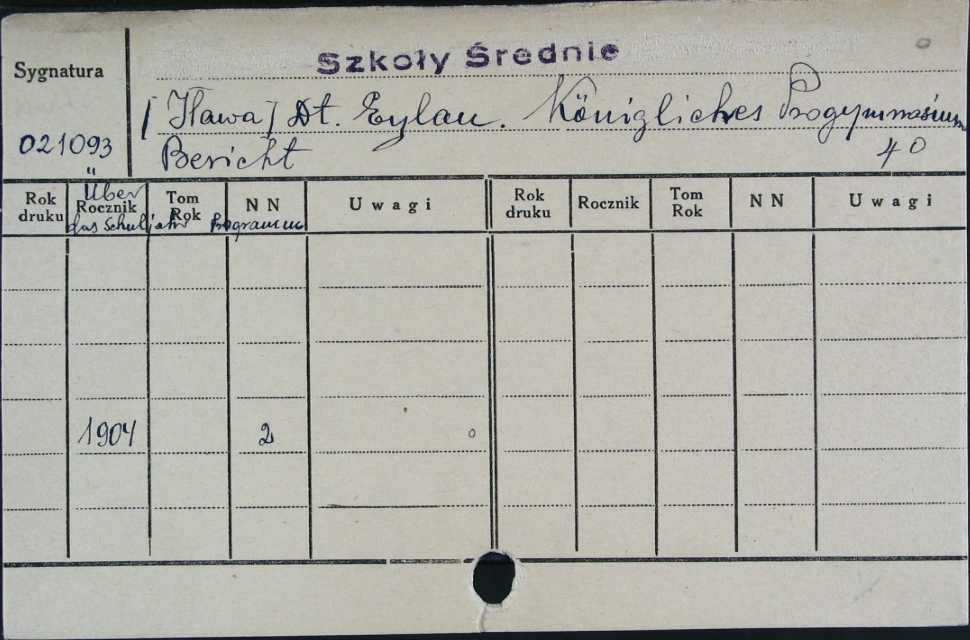 Szkoły Średnie
Sygnatura
[Iława] Dt. Eylau. Königliches Progymnasium
021093
Bericht
4 0
Über
das Schuljahr Programm
Rok druku Rocznik Tom Rok NN Uwagi Rok druku Rocznik Tom Rok NN Uwagi
1904 2